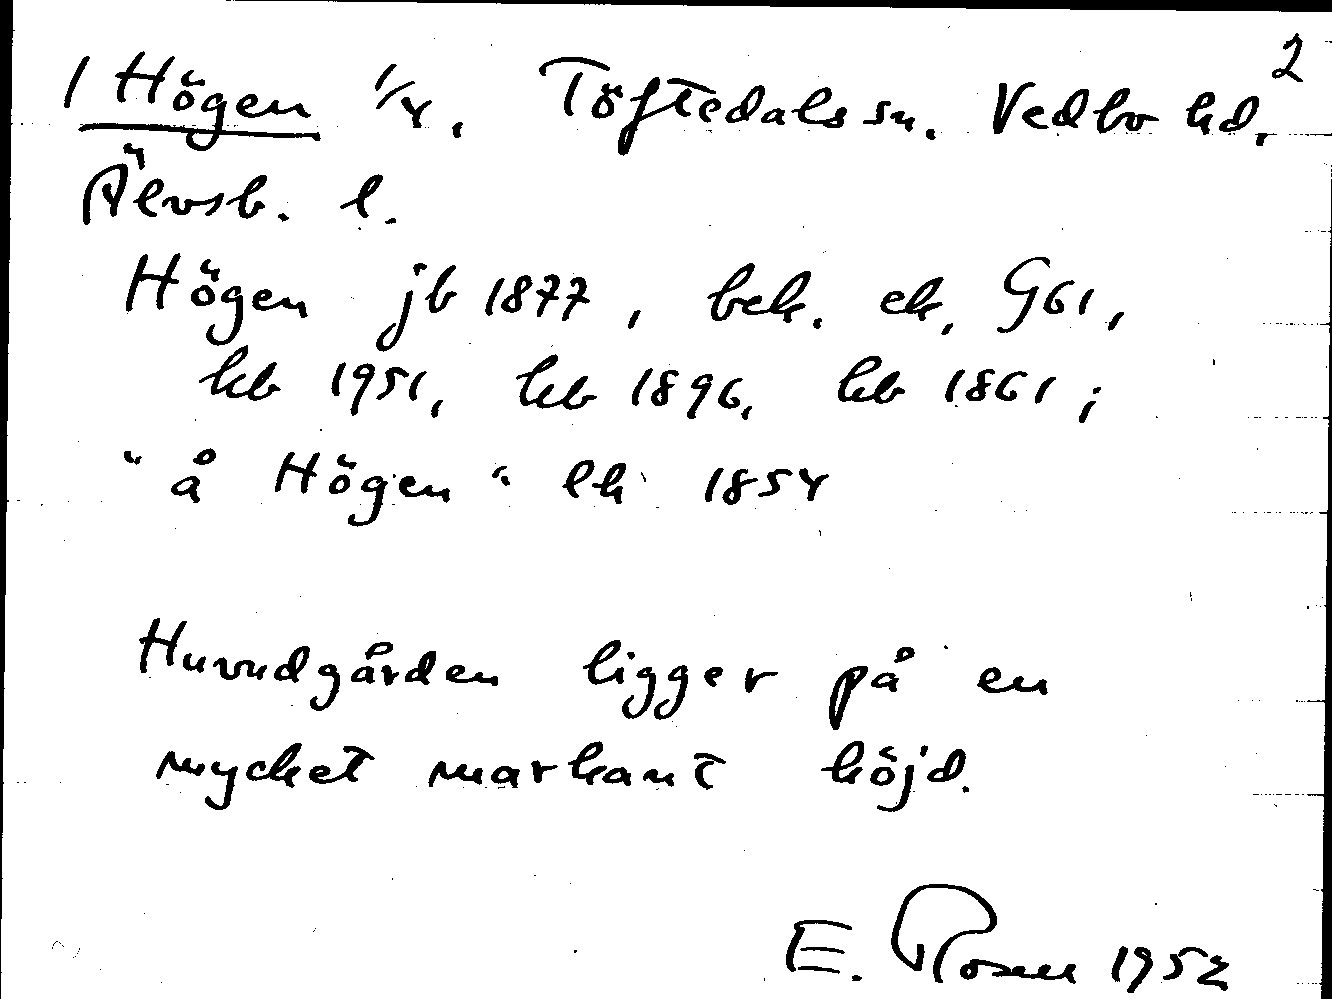 2
1 Högen 1/4, Töftedals sn. Vedbo hd,
Älvsb. l.
Högen jb 1877, bek. ek, G61,
kb 1951, kb 1896, kb 1861;
"å Högen" lk 1854
Huvudgården ligger på en
mycket markant höjd.
E. Rosell 1952